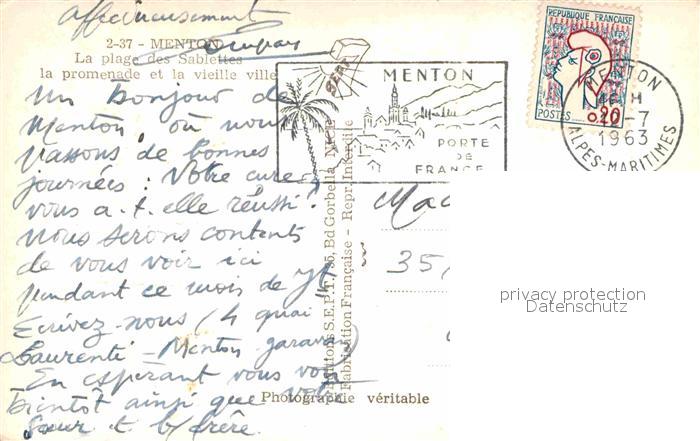 affectueusement
2-37 - MENTON
La plage des Sablettes
la promenade et la vieille ville
Un bonjour de
Menton, où nous
passons de bonnes
journées : Votre cure
vous a-t-elle réussi ?
Nous serons contents
de vous voir ici
pendant ce mois de
Ecrivez-nous (4 quai
Laurenti - Menton-garavan)
En espérant vous voir
bientôt ainsi que votre
sœur et b/frère.
MENTON
PORTE
DE
FRANCE
REPUBLIQUE FRANÇAISE
POSTES 0,20
MENTON
-7
1963
ALPES-MARITIMES
Editions S.E.P.T., 35, Bd Gorbella, NICE
Fabrication Française - Repr. Interdite
Photographie véritable
35
privacy protection
Datenschutz